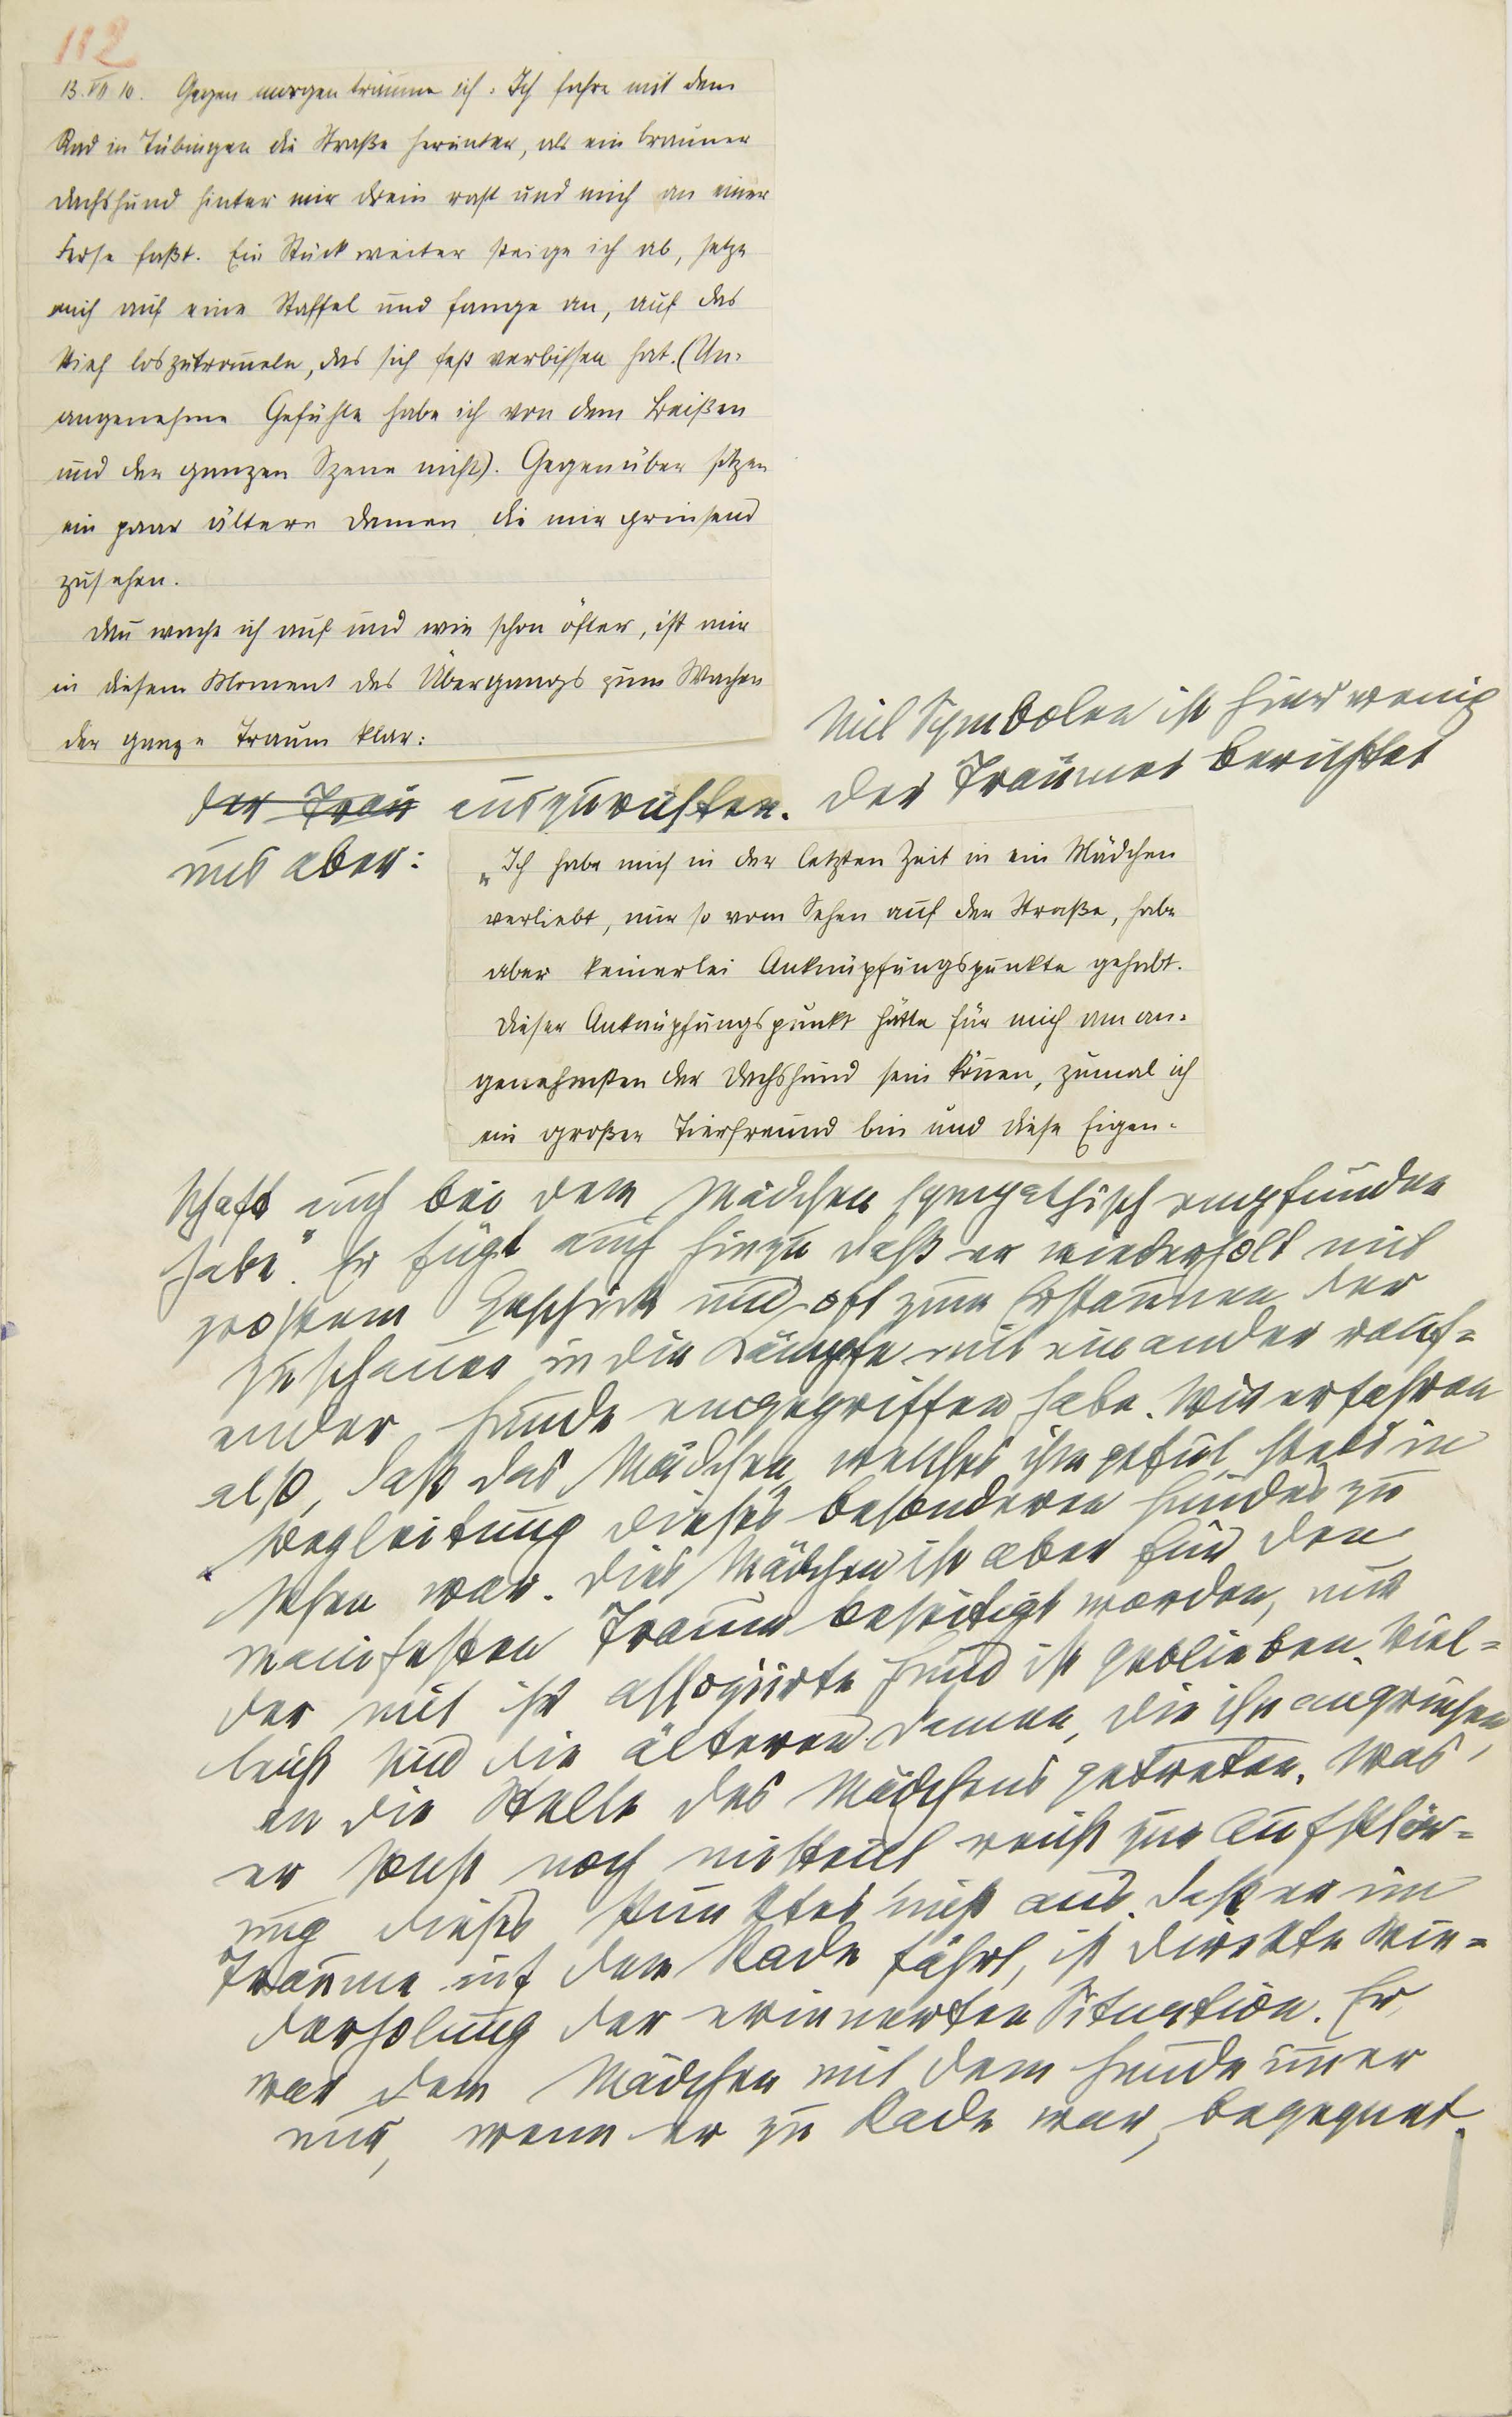 112
13. VII 10. Gegen morgen träume ich: Ich fahre mit dem
Rad in Tübingen die Straße herunter, als ein brauner
Dachshund hinter mir drein rast und mich an einer
Ferse faßt. Ein Stück weiter steige ich ab, setze
mich auf eine Staffel und fange an, auf das
Vieh loszutrom̄eln, das sich fest verbissen hat. (Un-
angenehme Gefühle habe ich von dem Beißen
und der ganzen Szene nicht). Gegenüber sitzen
ein paar ältere Damen, die mir grinsend
zusehen.
Dan̄ wache ich auf und wie schon öfter, ist mir
in diesem Moment des Übergangs zum Wachen
der ganze Traum klar:
Mit Symbolen ist hier wenig
der Trau auszurichten. Der Träumer berichtet
uns aber:
„Ich habe mich in der letzten Zeit in ein Mädchen
verliebt, nur so vom Sehen auf der Straße, habe
aber keinerlei Anknüpfungspunkte gehabt.
Dieser Anknüpfungspunkt hätte für mich am an-
genehmsten der Dachshund sein kön̄en, zumal ich
ein großer Tierfreund bin und diese Eigen-
schaft auch bei dem Mädchen sympathisch empfunden
habe." Er fügt auch hinzu daß er wiederholt mit
großem Geschick und oft zum Erstaunen der
Zuschauer in die Kämpfe mit einander rauf=
ender Hunde eingegriffen habe. Wir erfahren
also, daß das Mädchen, welches ihm gefiel, stets in
Begleitung dieses besonderen Hundes zu
sehen war. Dies Mädchen ist aber für den
manifesten Traum beseitigt worden, nur
der mit ihr assoziirte Hund ist geblieben. Viel=
leicht sind die älteren Damen, die ihn angrinsen,
an die Stelle des Mädchens getreten. Was
er sonst noch mitteilt reicht zur Aufklär=
ung dieses Punktes nicht aus. Daß er im
Traume auf dem Rade fährt, ist direkte Wie=
derholung der erinnerten Situation. Er
war dem Mädchen mit dem Hunde im̄er
nur, wenn er zu Rade war, begegnet.